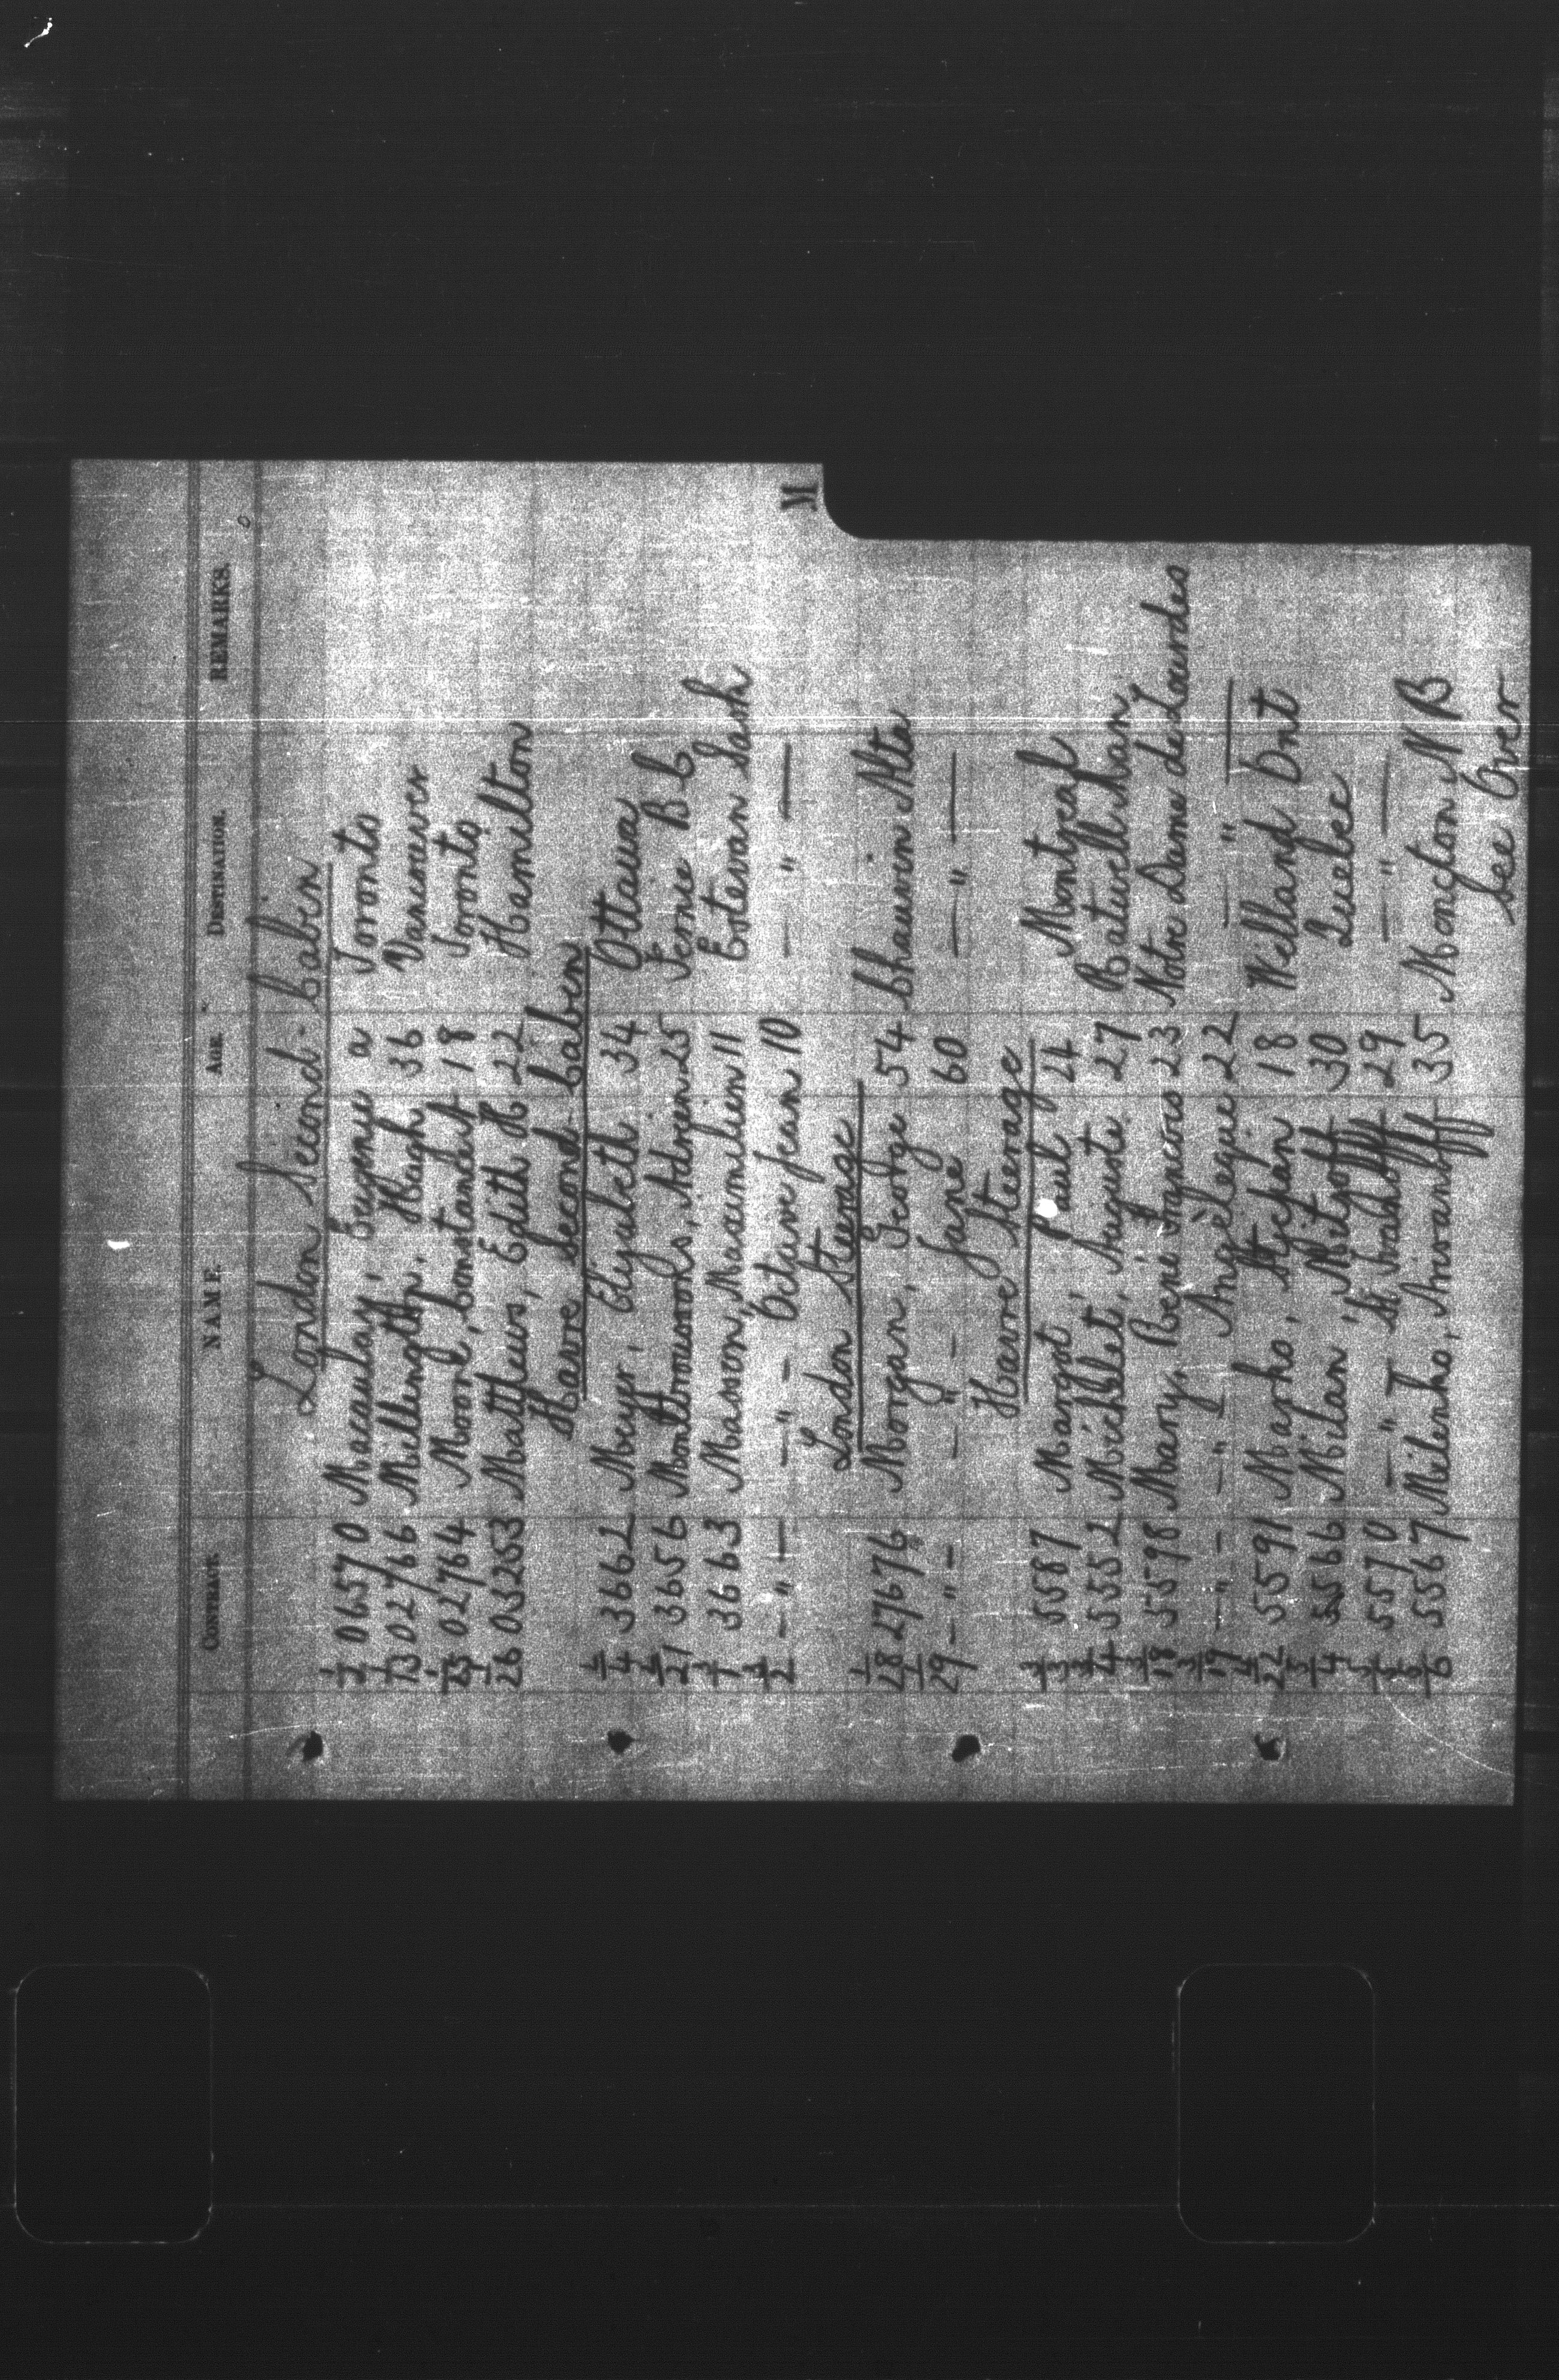 CONTRACT. NAME. AGE. DESTINATION. REMARKS.
London Second Cabin
1/2 06570 Macaulay, Eugenie a Toronto
1/13 02766 Millength, Hugh 36 Vancouver
1/25 02764 Moore, Constance 18 Toronto
1/26 03253 Mattews, Edith H 22 Hamilton
Havre Second Cabin
1/4 3662 Meyer, Elizabeth 34 Ottawa
21 3656 Adrien 25 Fernie B C
1 3663 Masson, Maxmilien 11 Estevan Sask
2 — " — — " — Octave Jean 10 — " —
M
London Steerage
1/28 27676 Morgan, George 54 Chauvin Alta
1/29 — " — — " — Jane 60 — " —
Havre Steerage
3/3 5587 Margot, Paul 24 Montreal
3/4 5552 Michelet, Auguste 27
3/18 5598 Mary, René 23 Notre Dame de Lourdes
3/19 — " — — " — Angèleque 22 — " —
22 5591 Marko, Stjepan 18 Welland Ont
5/4 5566 Milan, Mitgoff 30 Quebec
5/5 5570 — " — 29 — " —
6 5567 Milenko, 35 Moncton N B
See Over